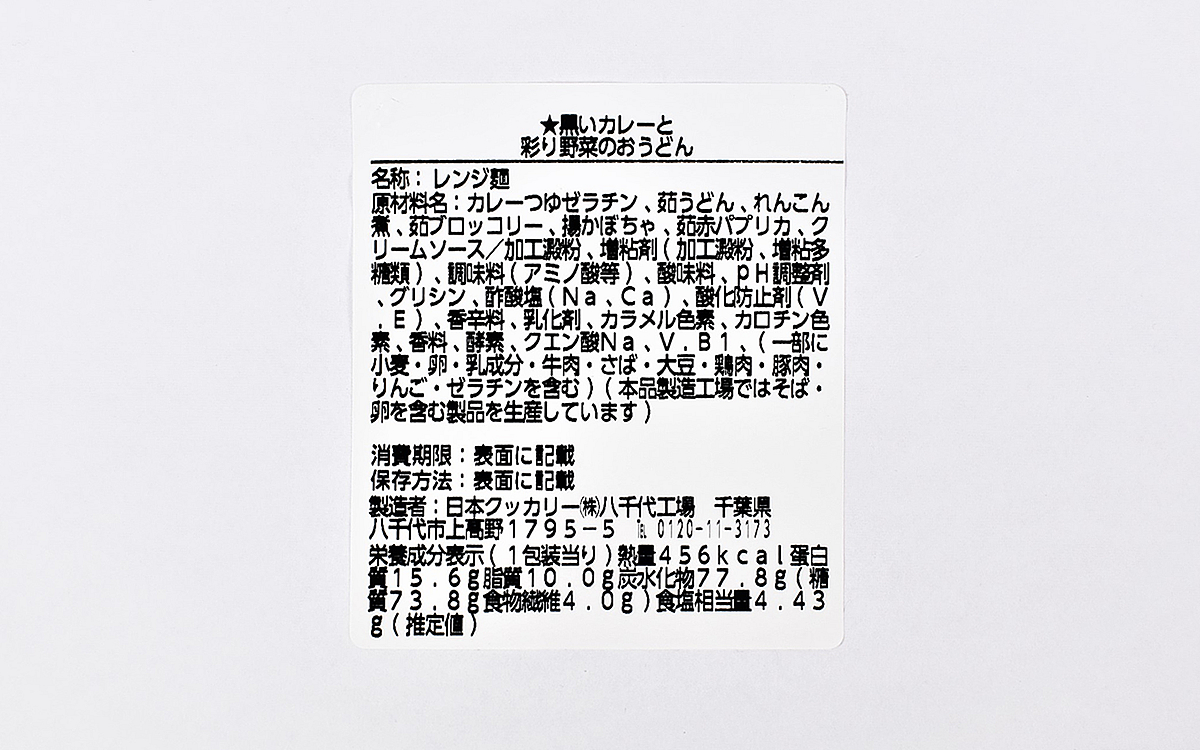 ★黒いカレーと
彩り野菜のおうどん
名称：レンジ麺
原材料名：カレーつゆゼラチン、茹うどん、れんこん
煮、茹ブロッコリー、揚かぼちゃ、茹赤パプリカ、ク
リームソース／加工澱粉、増粘剤（加工澱粉、増粘多
糖類）、調味料（アミノ酸等）、酸味料、ｐＨ調整剤
、グリシン、酢酸塩（Ｎａ、Ｃａ）、酸化防止剤（Ｖ
．Ｅ）、香辛料、乳化剤、カラメル色素、カロチン色
素、香料、酵素、クエン酸Ｎａ、Ｖ．Ｂ１、（一部に
小麦・卵・乳成分・牛肉・さば・大豆・鶏肉・豚肉・
りんご・ゼラチンを含む）（本品製造工場ではそば・
卵を含む製品を生産しています）
消費期限：表面に記載
保存方法：表面に記載
製造者：日本クッカリー㈱八千代工場　千葉県
八千代市上高野１７９５－５　℡ 0120-11-3173
栄養成分表示（１包装当り）熱量４５６ｋｃａｌ蛋白
質１５．６ｇ脂質１０．０ｇ炭水化物７７．８ｇ（糖
質７３．８ｇ食物繊維４．０ｇ）食塩相当量４．４３
ｇ（推定値）